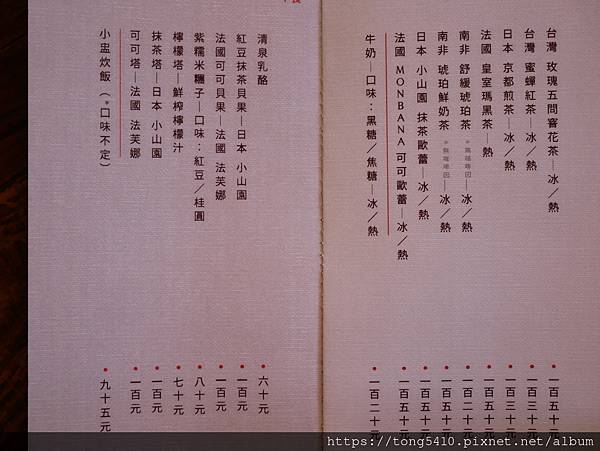 台灣 玫瑰五問窨花茶—冰/熱 • 一百五十元
台灣 蜜蟬紅茶—冰/熱 • 一百三十元
日本 京都煎茶—冰/熱 • 一百三十元
法國 皇室瑪黑茶—熱 • 一百五十元
南非 舒緩琥珀茶 *無咖啡因—冰/熱 • 一百五十元
南非 琥珀鮮奶茶 *無咖啡因—冰/熱 • 一百五十元
日本 小山園 抹茶歐蕾—冰/熱 • 一百五十元
法國 MONBANA 可可歐蕾—冰/熱 • 一百五十元
牛奶—口味：黑糖/焦糖—冰/熱 • 一百二十元
清泉乳酪 • 六十元
紅豆抹茶貝果—日本 小山園 • 一百元
法國可可貝果—法國 法芙娜 • 一百元
紫糯米糰子—口味：紅豆/桂圓 • 八十元
檸檬塔—鮮榨檸檬汁 • 七十元
抹茶塔—日本 小山園 • 一百元
可可塔—法國 法芙娜 • 一百元
小盅炊飯（*口味不定） • 九十五元
https://tong5410.pixnet.net/album